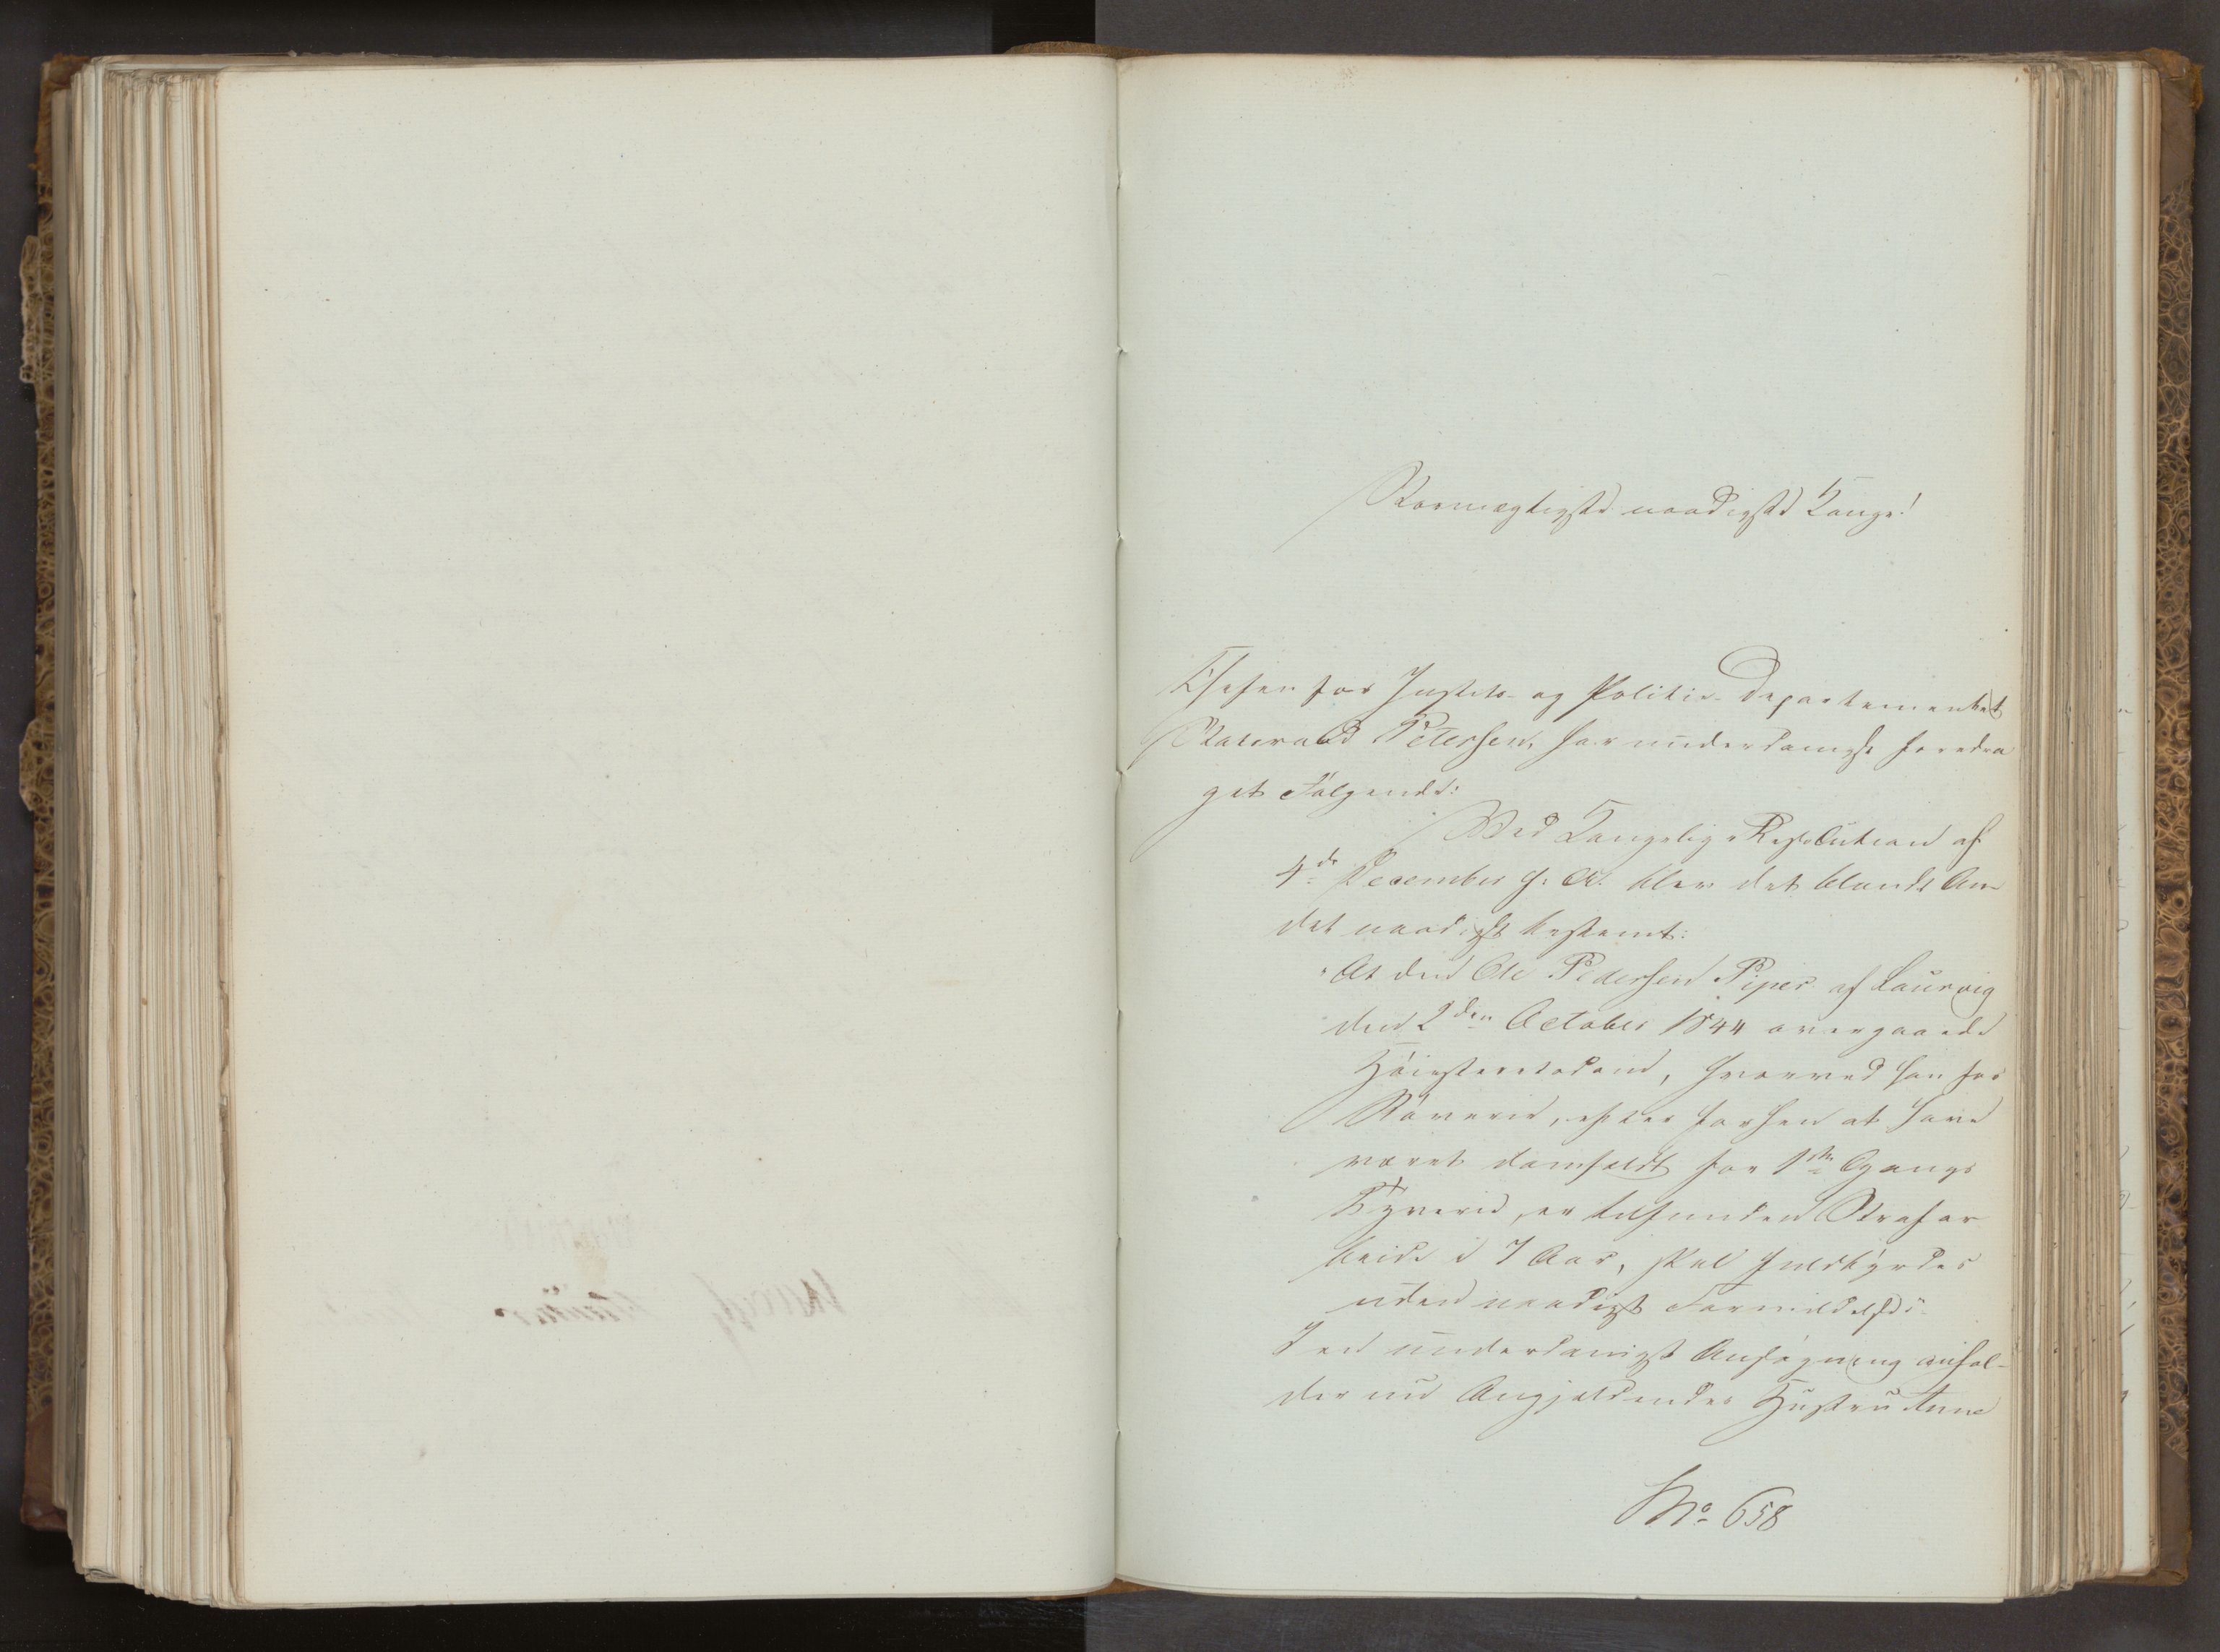 Stormægtigste naadigste Konge!
Chefen for Justits- og Politie-Departementet
Statsraad Petersen, har underdanigst foredra
get Følgende:
Ved Kongelig Resolution af
4de December f. A. blev det blandt An
det naadigst bestemt:
"At den Ole Pedersen Piper af Laurvig
den 2den October 1844 overgaaede
Høiesteretsdom, hvorved han for
Røverie, efter forhen at have
været domfældt for 1ste Gangs
Tyverie, er tilfunden Strafar
beide i 7 Aar, skal fuldbyrdes
uden naadigst Formildelse".
I en underdanigst Ansøgning anhol-
der nu Angjældendes Hustru Anne
No 658